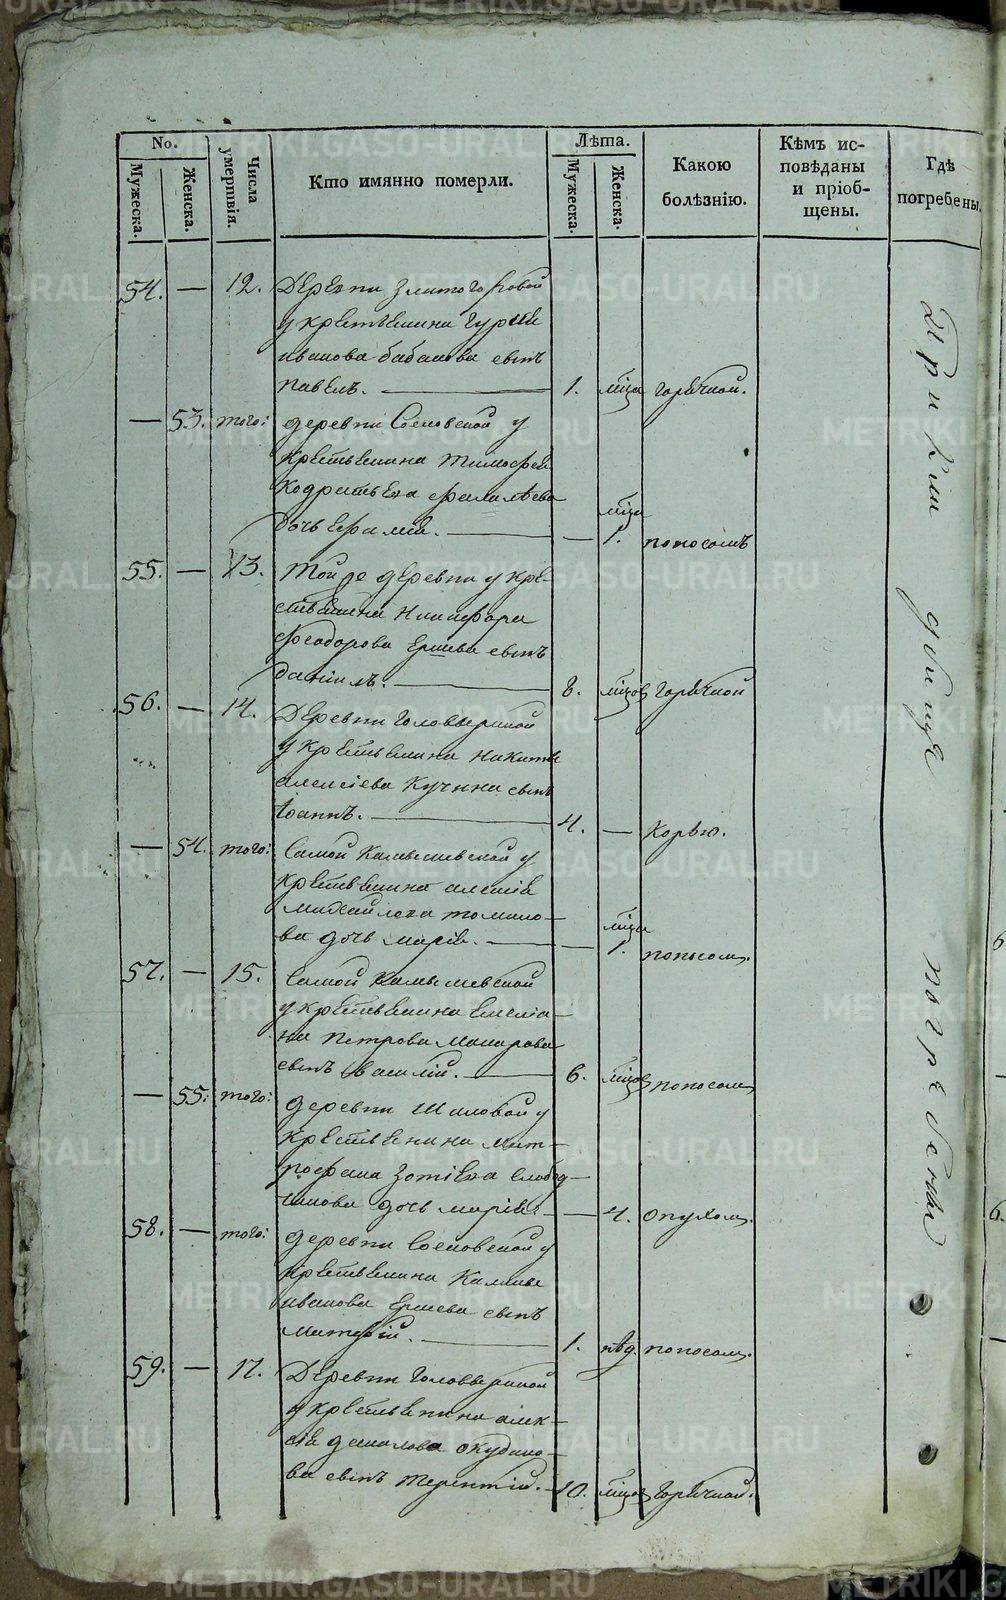 No.
Мужеска.
Женска.
Числа умертвія.
Кто имянно померли.
Лѣта.
Мужеска.
Женска.
Какою болѣзнію.
Кѣмъ ис-
повѣданы
и пріоб-
щены.
Гдѣ
погребены.
54. — 12. Деревни Златогоровой
у крестьянина Гурія
иванова бабанова сынъ
павелъ. — 1. мца горячкой.
— 53. того: деревни Сосновской у
крестьянина Тимофея
Кодратьева
дочь — 1. мца поносомъ
55. — 13. той же деревни у кре-
стьянина Никифора
феодорова Ершева сынъ
даніилъ. — 8. мцовъ горячкой
56. — 14. Деревни Головыриной
у крестьянина Никиты
алексіева Кучина сынъ
іоаннъ. — 4. — Корью.
— 54. того: самой Камышевской у
крестьянина алексія
михайлова томило-
ва дочь марія. — 1. мца поносом.
57. — 15. самой Камышевской
у крестьянина Емеліа-
на петрова макарова
сынъ василій. — 6. мцов поносом
— 55. того: деревни Шиловой у
крестьянина мит-
рофана Зотіева слобод-
чикова дочь марія. — 4. опухом.
58. — того: деревни Сосновской у
крестьянина
иванова Ершева сынъ
1. нѣд. поносом.
59. — 17. Деревни Головыриной
у крестьянина алек-
сія данилова окуло-
ва сынъ терентій. 10. мцов горячкой.
При кладбище погребены
METRIKI.GASO-URAL.RU